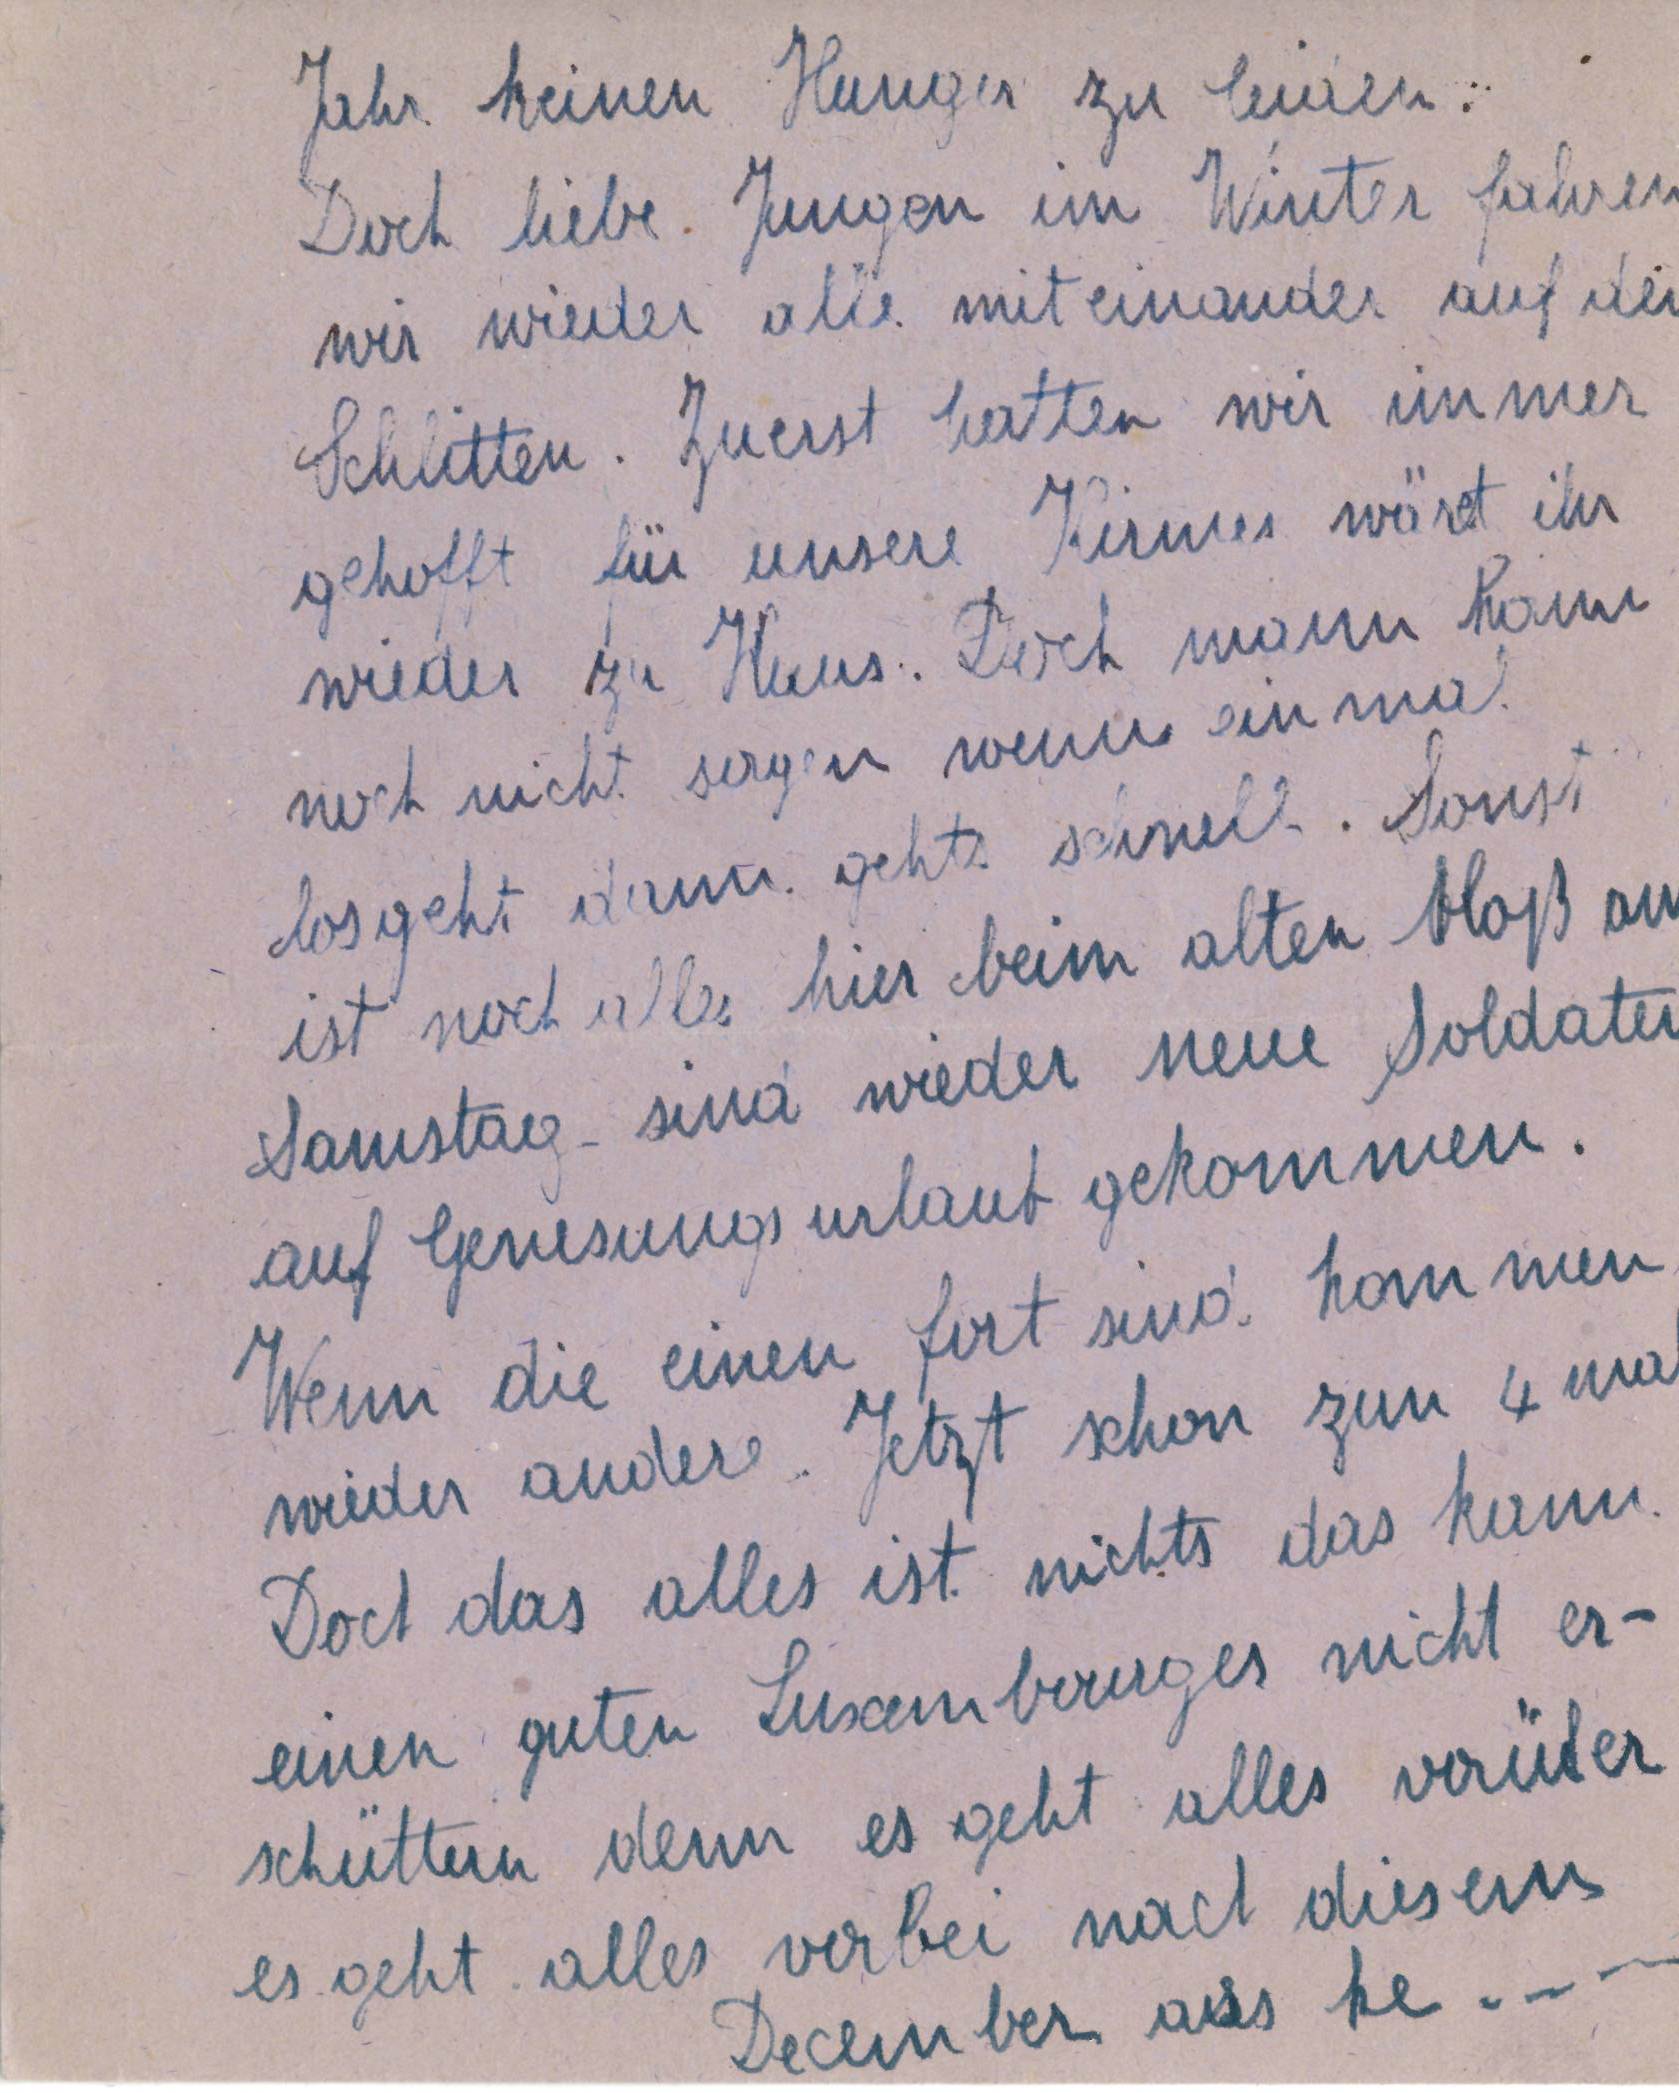 Jahr keinen Hunger zu leiden.
Doch liebe Jungen im Winter fahren
wir wieder alle miteinander auf den
Schlitten. Zuerst hatten wir immer
gehofft für unsere Kirmes wäret ihr
wieder zu Haus. Doch mann kann
noch nicht sagen wenns einmal
losgeht dann gehts schnell. Sonst
ist noch alles hier beim alten bloß am
Samstag sind wieder neue Soldaten
auf Genesungsurlaub gekommen.
Wenn die einen fort sind kommen
wieder andere. Jetzt schon zum 4 mal
Doch das alles ist nichts das kann
einen guten Luxembourger nicht er-
schüttern denn es geht alles vorüber
es geht alles vorbei nach diesem
December ass ke - - - -